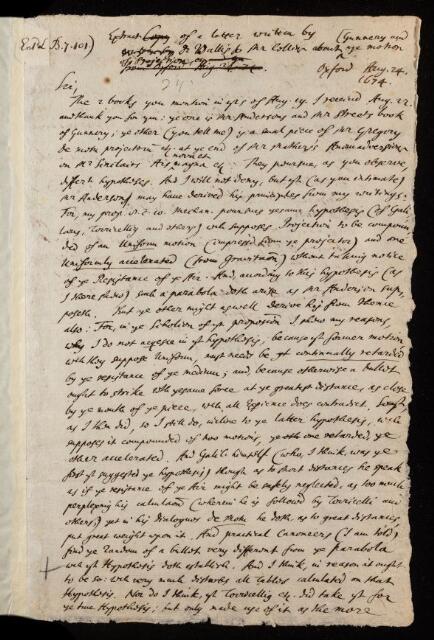 Extract Copy of a letter written by
Dr Wallis to Mr Collins about ye motion
(Gunnery and
Oxford Aug. 24.
1674.
Sir,
The 2 books you mention in yrs of Aug. I received Aug. 22.
and thank you for ym: ye one is Mr Andersons and Mr Streets book
of Gunnery; ye other (you tell me) ye small piece of Mr Gregory
de motu projectorum at ye end of Mr Animadversions
on Mr Sinclairs Ars magna &c. They pursue, as you observe,
differt hypotheses. And I will not deny, but yt (as you intimate)
Mr Anderson may have derived his principles from my writings.
For, my prop. mechan. pursues ye same hypothesis (of Gali-
læus, Torricellius and others) wch supposes Projection to be compoun-
ded of an Uniform motion (impressed from ye projector) and one
Uniformly accelerated (from Gravitation) without taking notice
of ye Resistance of ye Air. And, according to this hypothesis (as
I there shew) such a parabola doth arise as Mr Anderson sup-
poseth. But ye other might as well derive his from thence
also: For, in ye Scholium of yt proposition I shew my reasons,
why I do not acquiesce in yt hypothesis, because yt former motion
wch they suppose Uniform, must needs be yt continually retarded
by ye resistance of ye medium; and, because otherwise a bullet
ought to strike with ye same force at ye greatest distance, as close
by ye mouth of ye piece, wch all Experience does contradict.
as I then did, so I still do, incline to ye latter hypothesis, wch
supposes it compounded of two motions, ye one retarded, ye
other accelerated. And Galileo himself (who, I think, was ye
first yt suggested ye hypothesis) though as to short distances he speak
as if ye resistance of ye Air might be safely neglected, as too much
perplexing his calculation (wherein he is followed by Torricelli and
others) yet in his Dialogues de Motu he doth, as to great distances,
put great weight upon it. And practical Canoneers (I am told)
find ye Random of a bullet very different from ye Parabola
wch yt Hypothesis doth establish. And I think, in reason it ought
to be so: wch very much disturbs all tables calculated on that
Hypothesis. Nor do I think, yt Torricellius &c. did take yt for
ye true Hypothesis; but only made use of it as the more